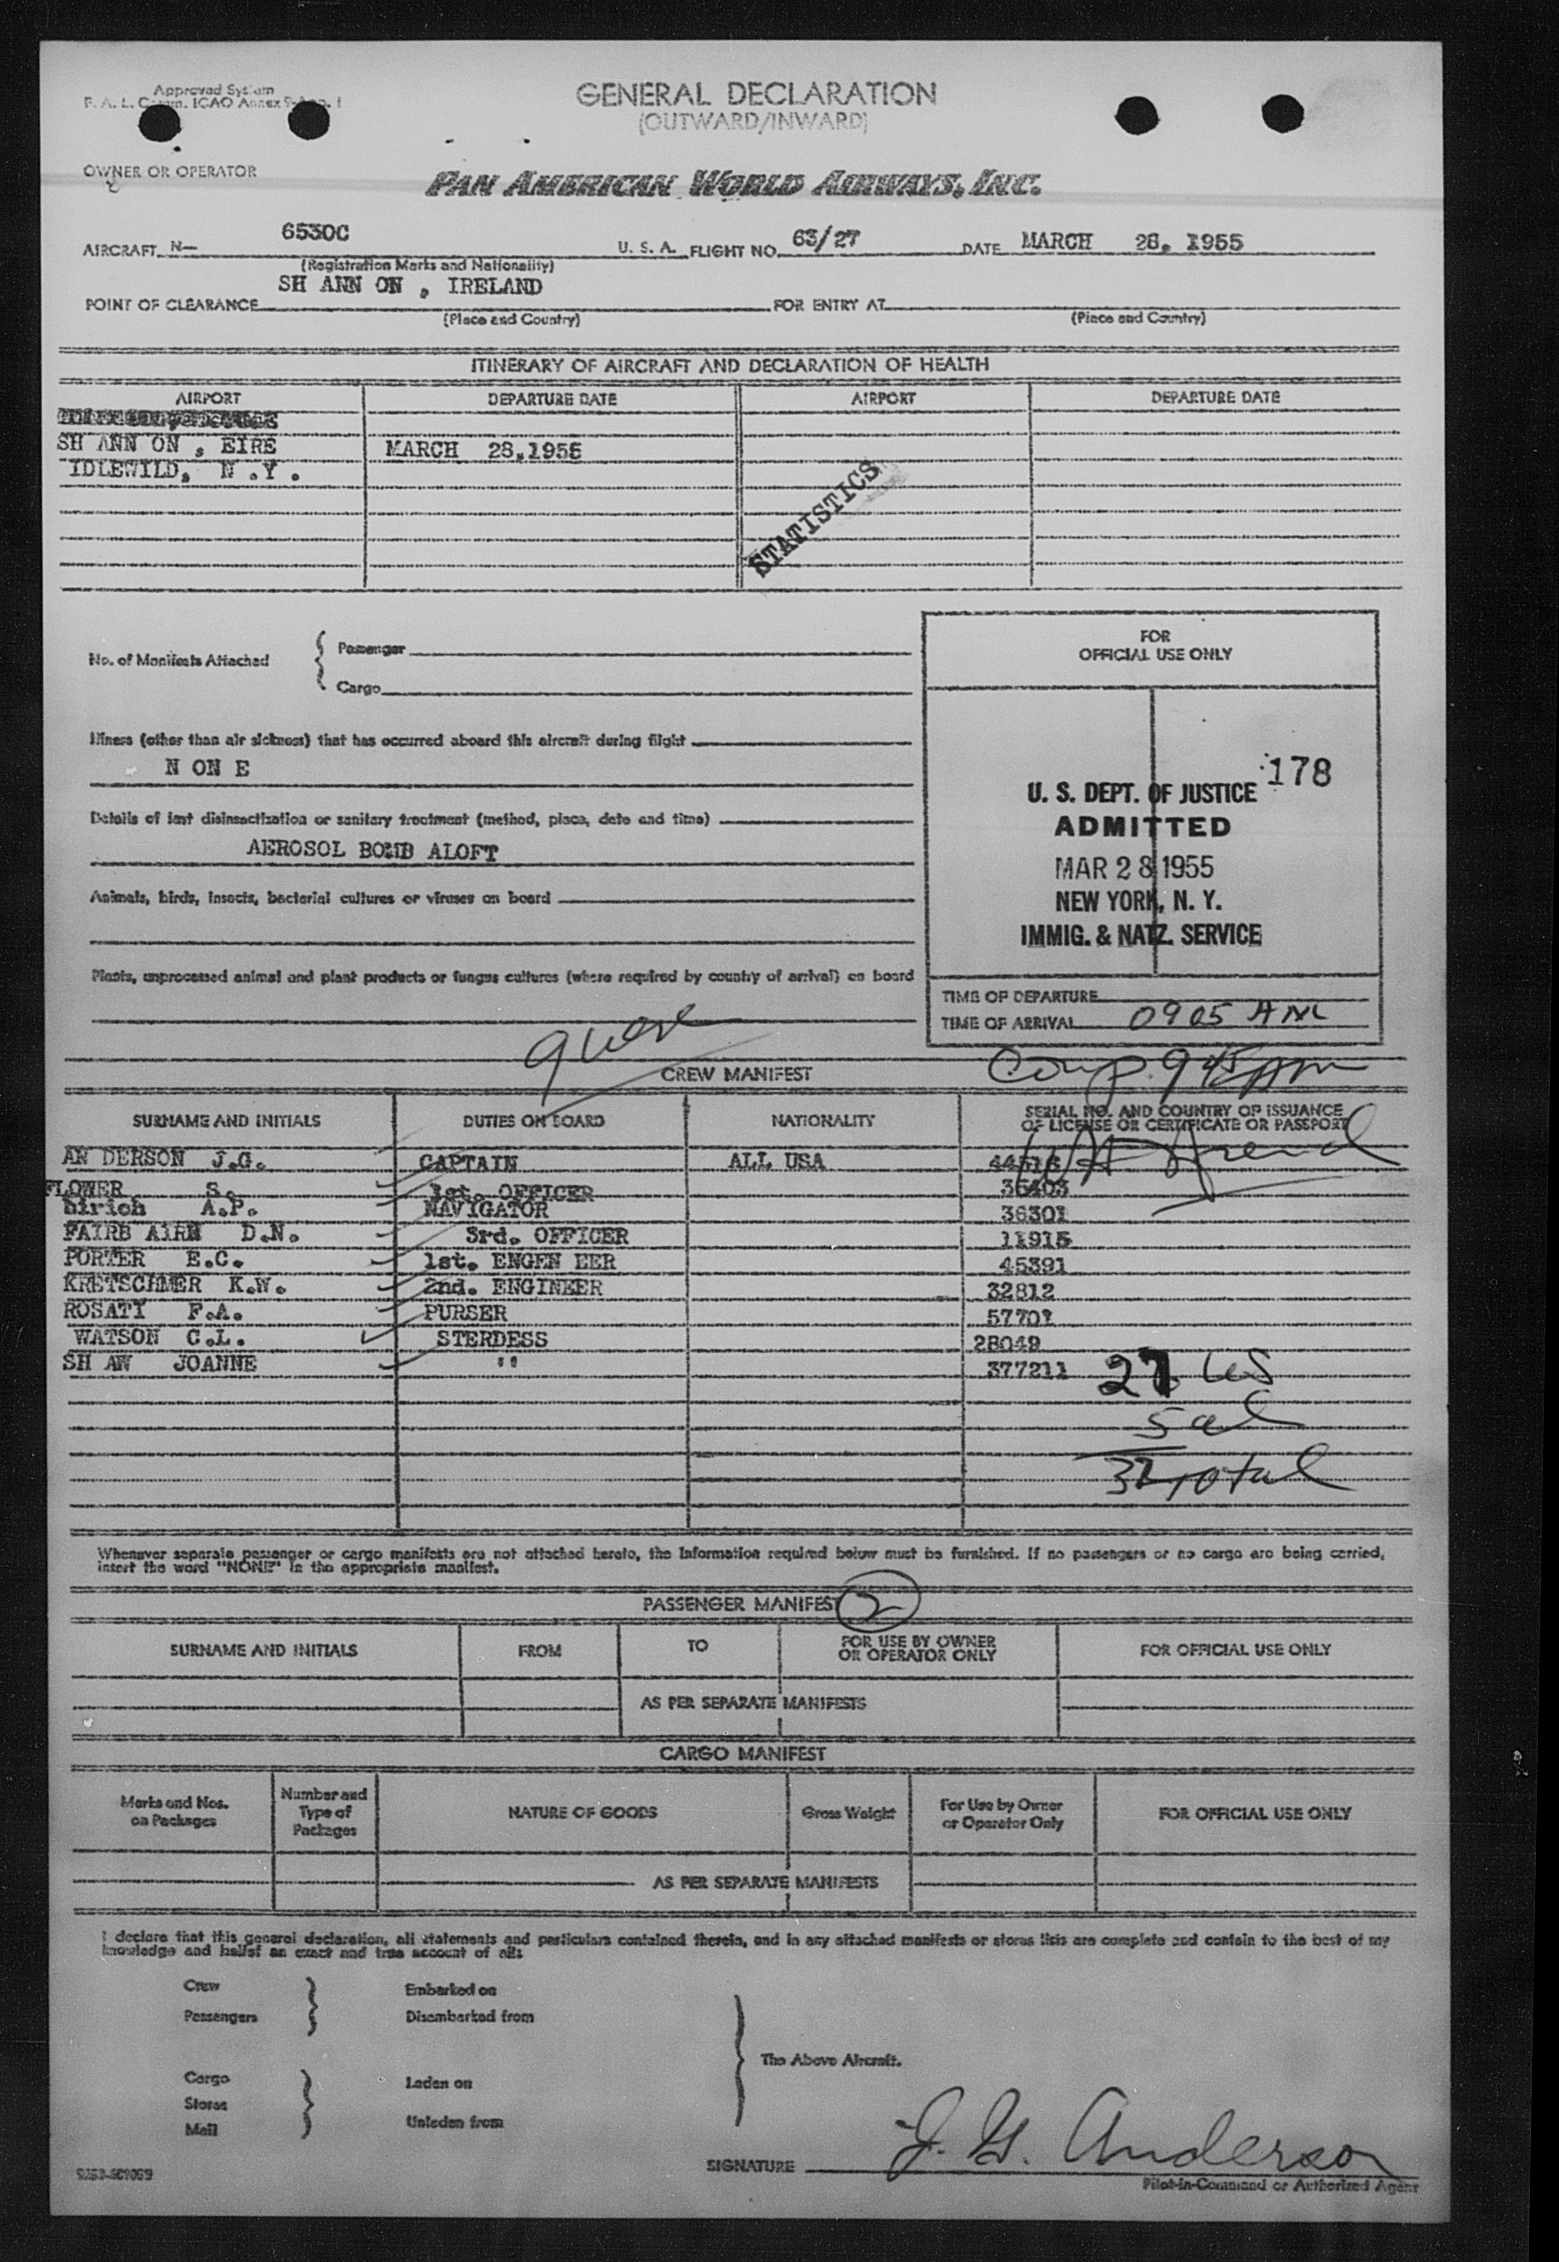 Approved System
F. A. L. Comm. ICAO Annex 9-App. 1
GENERAL DECLARATION
(OUTWARD/INWARD)
OWNER OR OPERATOR
PAN AMERICAN WORLD AIRWAYS, INC.
AIRCRAFT N- 6530C U. S. A. FLIGHT NO. 63/27 DATE MARCH 28, 1955
(Registration Marks and Nationality)
POINT OF CLEARANCE SH ANN ON , IRELAND FOR ENTRY AT
(Place and Country) (Place and Country)
ITINERARY OF AIRCRAFT AND DECLARATION OF HEALTH
AIRPORT DEPARTURE DATE AIRPORT DEPARTURE DATE
SH ANN ON , EIRE MARCH 28,1955
IDLEWILD, N .Y .
STATISTICS
No. of Manifests Attached
Passenger
Cargo
FOR
OFFICIAL USE ONLY
Illness (other than air sickness) that has occurred aboard this aircraft during flight
N ON E
178
U. S. DEPT. OF JUSTICE
ADMITTED
MAR 28 1955
NEW YORK, N. Y.
IMMIG. & NATZ. SERVICE
Details of last disinsectization or sanitary treatment (method, place, date and time)
AEROSOL BOMB ALOFT
Animals, birds, insects, bacterial cultures or viruses on board
Plants, unprocessed animal and plant products or fungus cultures (where required by country of arrival) on board
TIME OF DEPARTURE
TIME OF ARRIVAL 0905 AM
Comp. 945 AM
CREW MANIFEST
SURNAME AND INITIALS DUTIES ON BOARD NATIONALITY SERIAL NO. AND COUNTRY OF ISSUANCE
OF LICENSE OR CERTIFICATE OR PASSPORT
AN DERSON J.G. CAPTAIN ALL USA
FLOWER S. 1st. OFFICER 36403
Dirich A.P. NAVIGATOR 36301
FAIRB AIRN D.N. 3rd. OFFICER 11915
PORTER E.C. 1st. ENGEN EER 45391
KRETSCHMER K.W. 2nd. ENGINEER 32812
ROSATI F.A. PURSER 57701
WATSON C.L. STERDESS 28049
SH AW JOANNE " 377211
27 US
5 al
32 total
Whenever separate passenger or cargo manifests are not attached hereto, the information required below must be furnished. If no passengers or no cargo are being carried,
insert the word "NONE" in the appropriate manifest.
PASSENGER MANIFEST 2
SURNAME AND INITIALS FROM TO FOR USE BY OWNER
OR OPERATOR ONLY FOR OFFICIAL USE ONLY
AS PER SEPARATE MANIFESTS
CARGO MANIFEST
Marks and Nos.
on Packages Number and
Type of
Packages NATURE OF GOODS Gross Weight For Use by Owner
or Operator Only FOR OFFICIAL USE ONLY
AS PER SEPARATE MANIFESTS
I declare that this general declaration, all statements and particulars contained therein, and in any attached manifests or stores lists are complete and contain to the best of my
knowledge and belief an exact and true account of all:
Crew Embarked on
Passengers Disembarked from
The Above Aircraft.
Cargo Laden on
Stores
Mail Unladen from
SIGNATURE J. G. Anderson
Pilot-in-Command or Authorized Agent